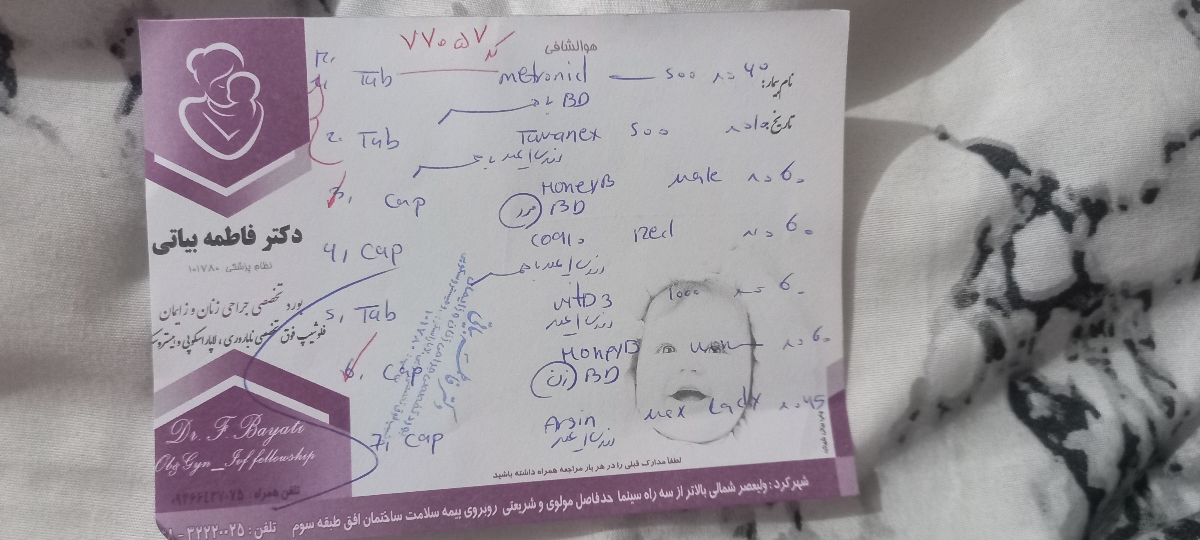 هوالشافی
کد ۷۷۰۵۷
نام بیمار:
تاریخ:
1, Tab metronid 500 N=40
BD
2. Tab Tavanex 500
3, Cap HoneyB male N=60
BD مرد
4, Cap COQ10 Red N=60
5, Tab vitD3 1000 60
روزی ۱ عدد
6. Cap HoneyB N=60
BD زن
7, Cap Arsin max Lady N=45
روزی ۱ عدد
دکتر فاطمه بیاتی
نظام پزشکی ۱۰۱۷۸۰
بورد تخصصی جراحی زنان و زایمان
فلوشیپ فوق تخصصی ناباروری، لاپاراسکوپی و
Dr. F. Bayati
Ob&Gyn_Ivf fellowship
تلفن همراه
لطفا مدارک قبلی را در هر بار مراجعه همراه داشته باشید
شهرکرد: ولیعصر شمالی بالاتر از سه راه سینما حدفاصل مولوی و شریعتی روبروی بیمه سلامت ساختمان افق طبقه سوم تلفن: ۳۲۲۲۰۰۲۵